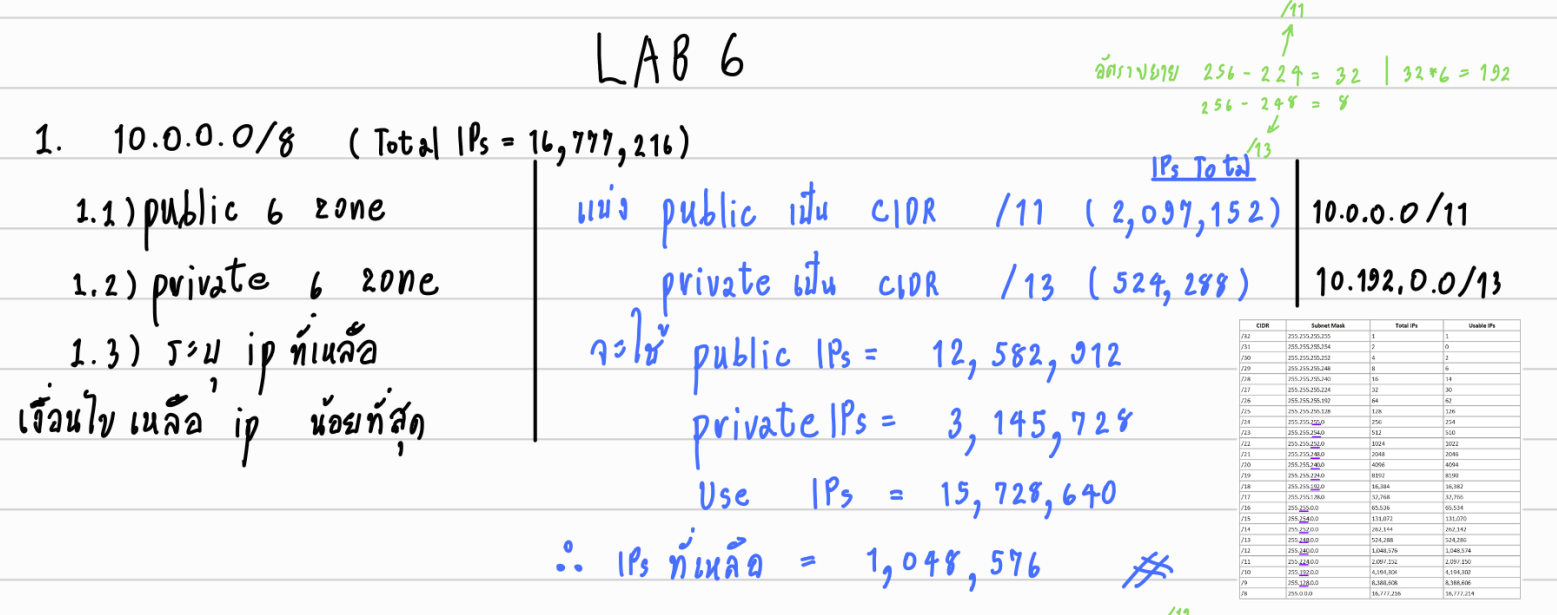 LAB 6
/11
อัตราขยาย 256 - 224 = 32 | 32*6 = 192
256 - 248 = 8
/13
1. 10.0.0.0/8 (Total IPs = 16,777,216)
1.1) public 6 zone
1.2) private 6 zone
1.3) ระบุ ip ที่เหลือ
เงื่อนไข เหลือ ip น้อยที่สุด
IPs Total
แบ่ง public เป็น CIDR /11 (2,097,152) 10.0.0.0/11
private เป็น CIDR /13 (524,288) 10.192.0.0/13
จะใช้ public IPs = 12,582,912
private IPs = 3,145,728
Use IPs = 15,728,640
∴ IPs ที่เหลือ = 1,048,576
CIDR Subnet Mask Total IPs Usable IPs
/32 255.255.255.255 1 1
/31 255.255.255.254 2 0
/30 255.255.255.252 4 2
/29 255.255.255.248 8 6
/28 255.255.255.240 16 14
/27 255.255.255.224 32 30
/26 255.255.255.192 64 62
/25 255.255.255.128 128 126
/24 255.255.255.0 256 254
/23 255.255.254.0 512 510
/22 255.255.252.0 1024 1022
/21 255.255.248.0 2048 2046
/20 255.255.240.0 4096 4094
/19 255.255.224.0 8192 8190
/18 255.255.192.0 16,384 16,382
/17 255.255.128.0 32,768 32,766
/16 255.255.0.0 65,536 65,534
/15 255.254.0.0 131,072 131,070
/14 255.252.0.0 262,144 262,142
/13 255.248.0.0 524,288 524,286
/12 255.240.0.0 1,048,576 1,048,574
/11 255.224.0.0 2,097,152 2,097,150
/10 255.192.0.0 4,194,304 4,194,302
/9 255.128.0.0 8,388,608 8,388,606
/8 255.0.0.0 16,777,216 16,777,214